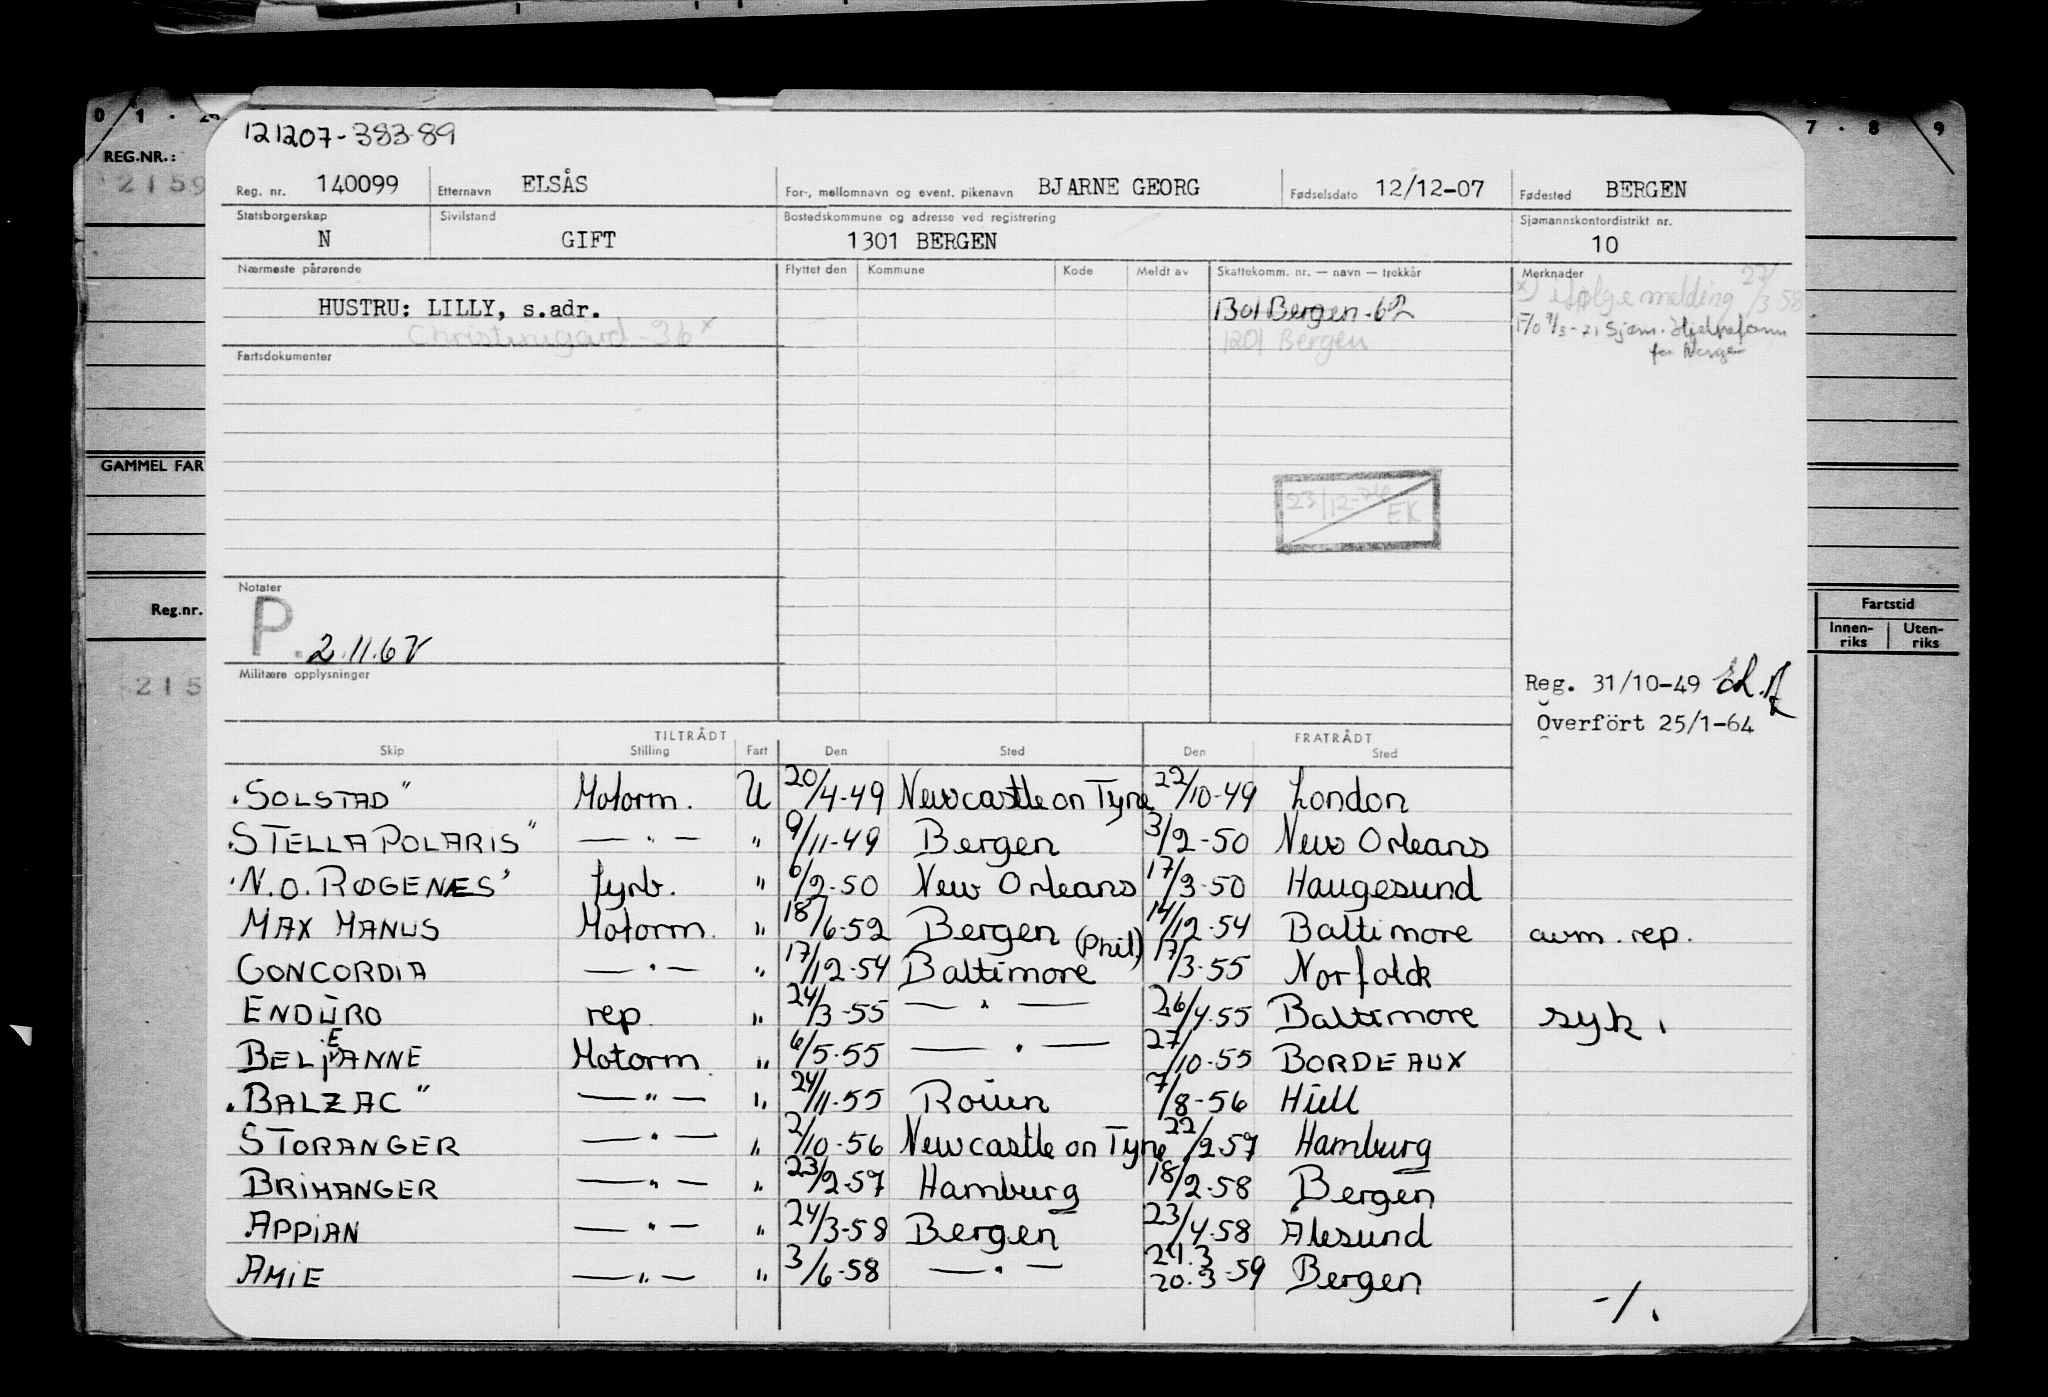 0 1 · 2
7 · 8 9
REG.NR.:
2159
GAMMEL FAR
Reg.nr.
215
Fartstid
Innen-riks Uten-riks
121207-38389
Reg. nr. 140099 Etternavn ELSÅS For-, mellomnavn og event. pikenavn BJARNE GEORG Fødselsdato 12/12-07 Fødested BERGEN
Statsborgerskap Sivilstand Bostedskommune og adresse ved registrering Sjømannskontordistrikt nr.
N GIFT 1301 BERGEN 10
Nærmeste pårørende Flyttet den Kommune Kode Meldt av Skattekomm. nr. — navn — trekkår Merknader
x) ifølge melding 27/3-58
HUSTRU: LILLY, s.adr. 1301 Bergen-62
Christinegård 36 x 1201 Bergen
for Norge
Fartsdokumenter
23/12-76 EK
Notater
P. 2.11.62
Militære opplysninger
Reg. 31/10-49
Överfört 25/1-64
TILTRÅDT FRATRÅDT
Skip Stilling Fart Den Sted Den Sted
"SOLSTAD" Motorm. U 20/4-49 Newcastle on Tyne 22/10-49 London
"STELLA POLARIS" — " — " 9/11-49 Bergen 3/2-50 New Orleans
"N.O. RØGENÆS" fyrb. " 6/2-50 New Orleans 17/3-50 Haugesund
MAX MANUS Motorm. " 18/6-52 Bergen 14/12-54 Baltimore avm. rep.
CONCORDIA — " — " 17/12-54 Baltimore (Phil.) 17/3-55 Norfolck
ENDURO rep. " 24/3-55 — " — 26/4-55 Baltimore syk.
BELJEANNE Motorm. " 6/5-55 — " — 27/10-55 BORDEAUX
"BALZAC" — " — " 24/11-55 Rouen 7/8-56 Hull
STORANGER — " — " 2/10-56 Newcastle on Tyne 22/2-57 Hamburg
BRIMANGER — " — " 23/2-57 Hamburg 18/2-58 Bergen
APPIAN — " — " 24/3-58 Bergen 23/4-58 Ålesund
AMIE — " — " 3/6-58 — " — 21.3 20.3-59 Bergen
-/.